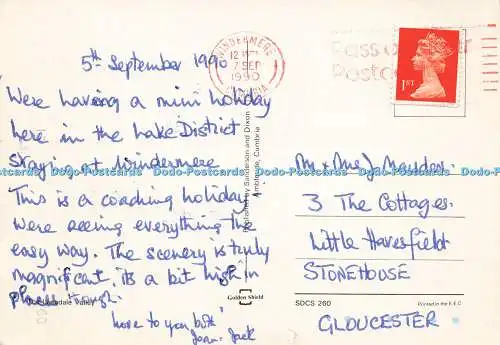 5th September 1990
Were having a mini holiday
here in the Lake District
staying at Windermere
This is a coaching holiday
were seeing everything the
easy way. The scenery is truly
magnificent, its a bit high in
places though.
love to you both
Joan. Jack
WINDERMERE
7 SEP
1990
CUMBRIA
Postcode
1ST
Published by Sanderson and Dixon
Ambleside, Cumbria
Mr & Mrs J
3 The Cottages.
Little Haresfield
STONEHOUSE
GLOUCESTER
Golden Shield
SDCS 260
Printed in the E.E.C
Dodo-Postcards Dodo-Postcards Dodo-Postcards Dodo-Postcards Dodo-Postcards